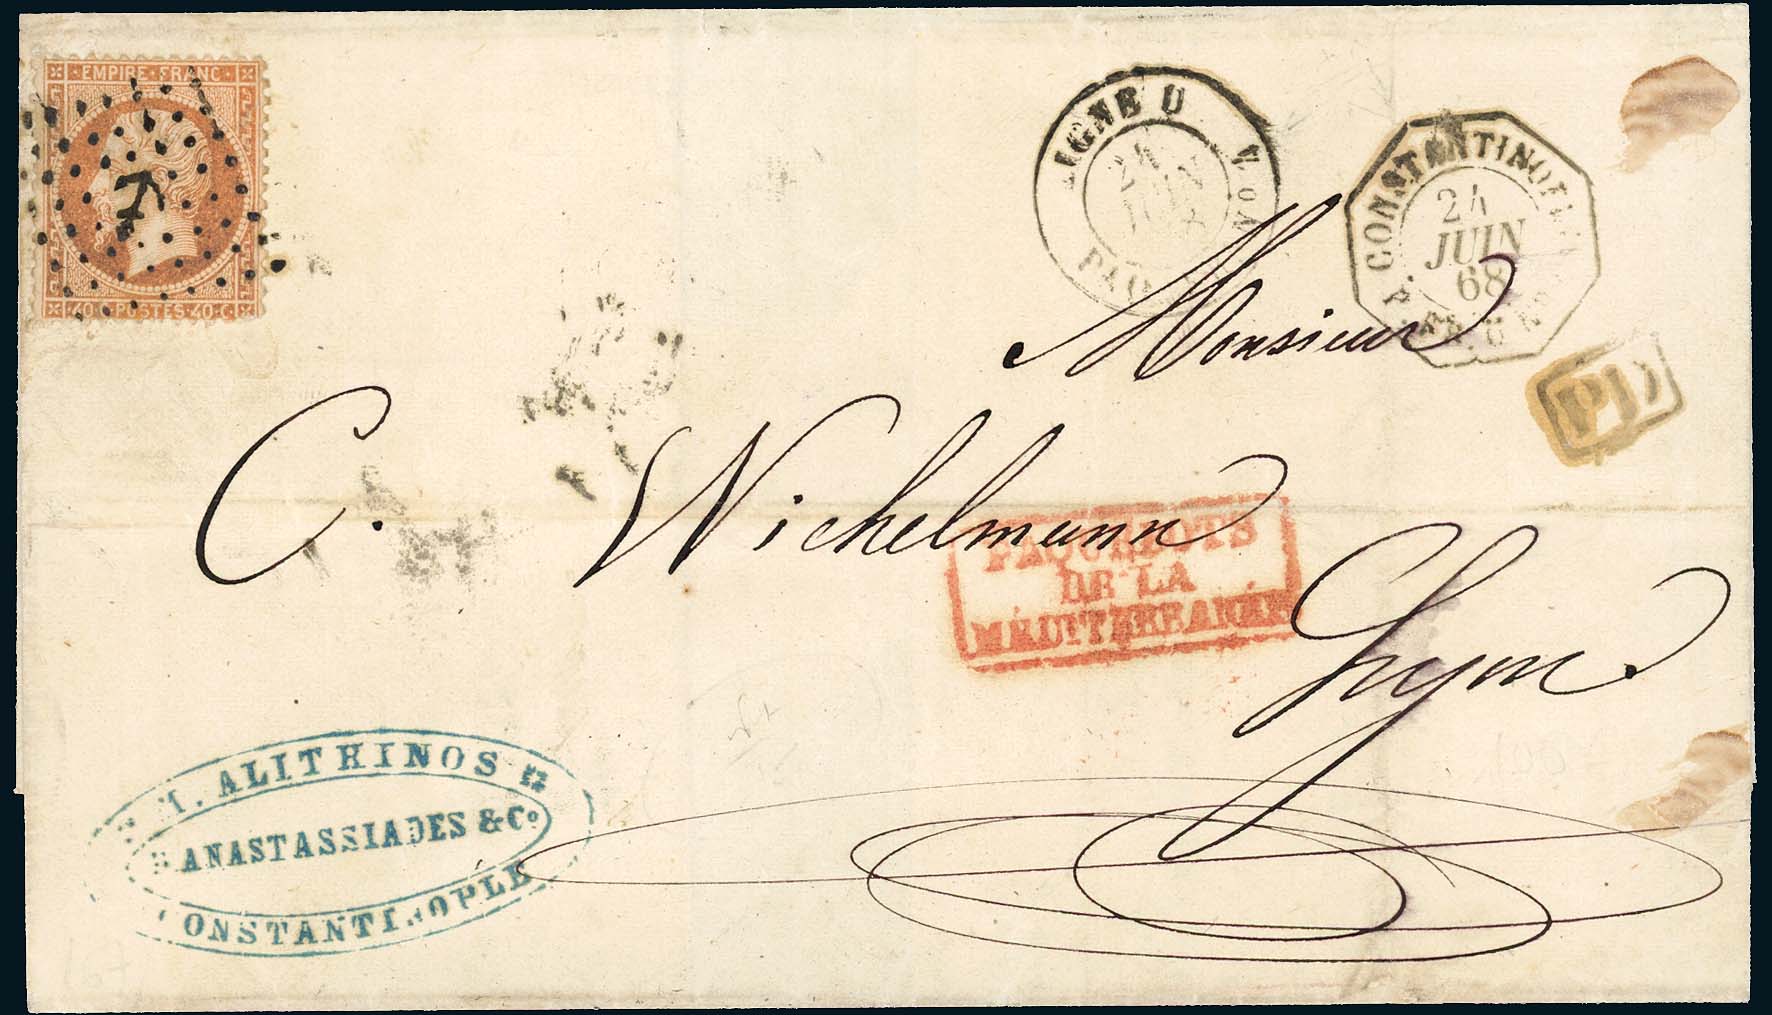 EMPIRE·FRANC
40·C·POSTES·40·C
LIGNE U
24
JUIN
CONSTANTINOPLE
24
JUIN
68
PD
Monsieur
C. Wichelmann
PAQUEBOTS
DE LA
MÉDITERRANÉE
Lyon
M. ALITHINOS
ANASTASSIADES & Co
CONSTANTINOPLE